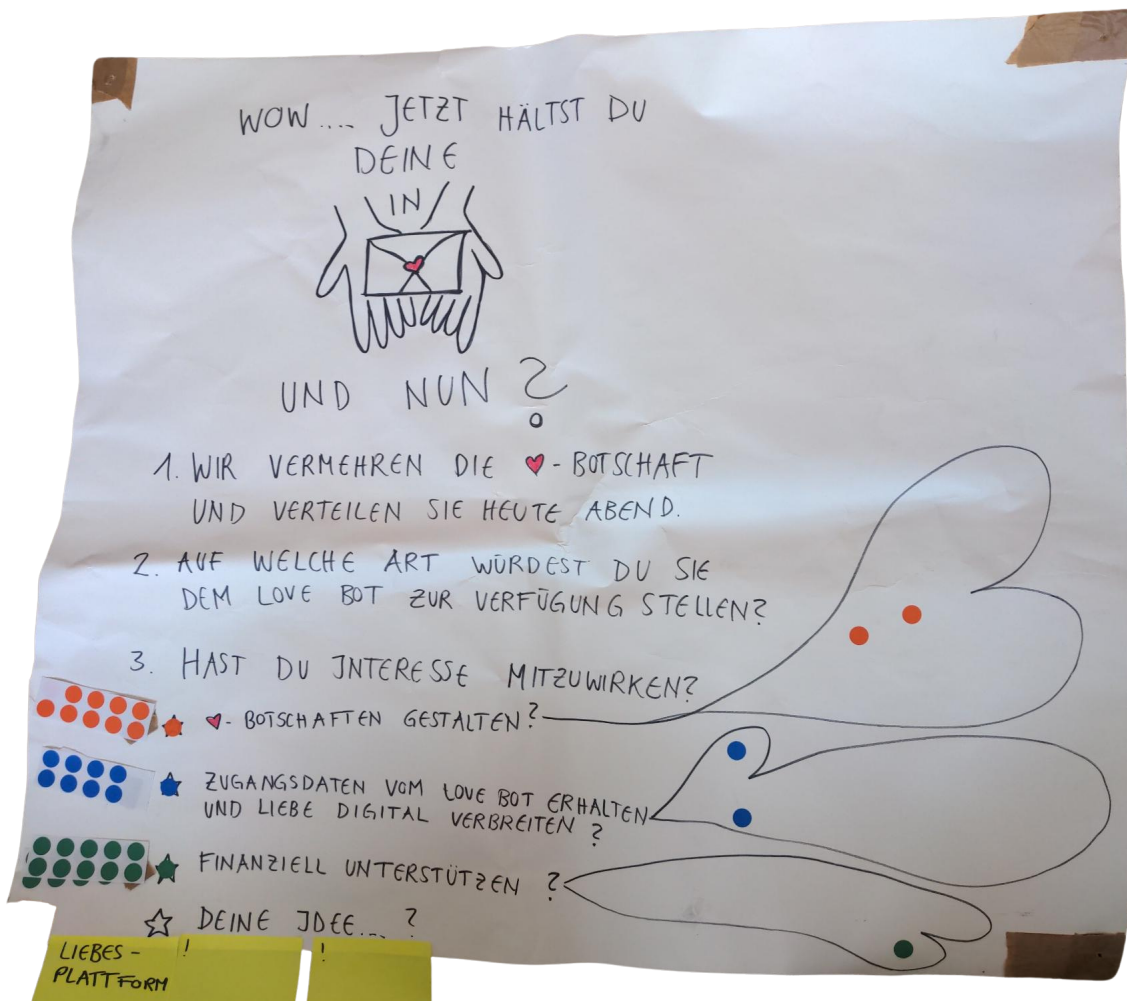 WOW.... JETZT HÄLTST DU
DEINE
IN
UND NUN?
1. WIR VERMEHREN DIE ♥-BOTSCHAFT
UND VERTEILEN SIE HEUTE ABEND.
2. AUF WELCHE ART WÜRDEST DU SIE
DEM LOVE BOT ZUR VERFÜGUNG STELLEN?
3. HAST DU INTERESSE MITZUWIRKEN?
♥-BOTSCHAFTEN GESTALTEN?
ZUGANGSDATEN VOM LOVE BOT ERHALTEN
UND LIEBE DIGITAL VERBREITEN?
FINANZIELL UNTERSTÜTZEN?
DEINE IDEE....?
LIEBES- !
PLATTFORM
!